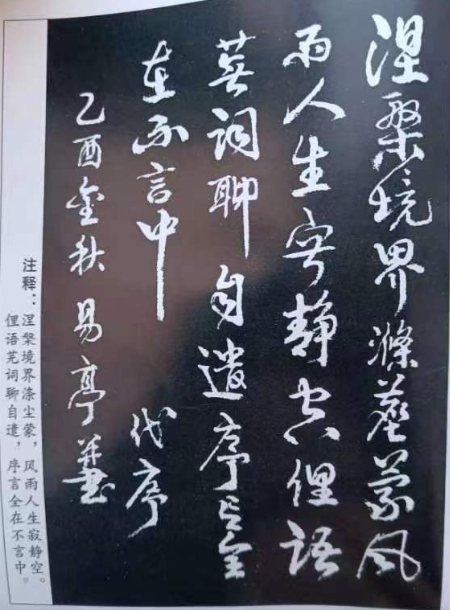 涅槃境界滌塵蒙风
雨人生寂静空俚語
芜词聊自遣序言全
在不言中 代序
乙酉金秋 易亭
注释：涅槃境界涤尘蒙，风雨人生寂静空。
俚语芜词聊自遣，序言全在不言中。